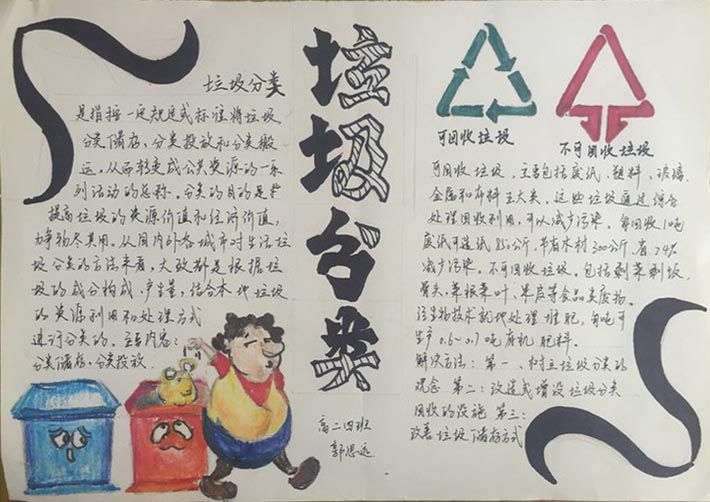 垃圾分类
是指按一定规定或标准将垃圾
分类储存、分类投放和分类搬
运，从而转变成公共资源的一系
列活动的总称。分类的目的是
提高垃圾的资源价值和经济价值，
力争物尽其用。从国内外各城市对生活垃
圾分类的方法来看，大致都是根据垃
圾的成分构成、产生量，结合本地垃圾
的资源利用和处理方式
进行分类的。主要内容：
分类储存、分类投放
垃圾分类
高二四班
郭思远
可回收垃圾
不可回收垃圾
可回收垃圾，主要包括废纸、塑料、玻璃、
金属和布料五大类，这些垃圾通过综合
处理回收利用，可以减少污染。每回收1吨
废纸可造纸850公斤，节省木材300公斤，
减少污染。不可回收垃圾，包括剩菜剩饭、
骨头、菜根菜叶、果皮等食品类废物。
生物技术就地处理堆肥，每吨可
生产0.6~0.7吨有机肥料。
解决方法：第一、树立垃圾分类的
观念 第二：改造或增设垃圾分类
回收的设施 第三：
改善垃圾储存方式